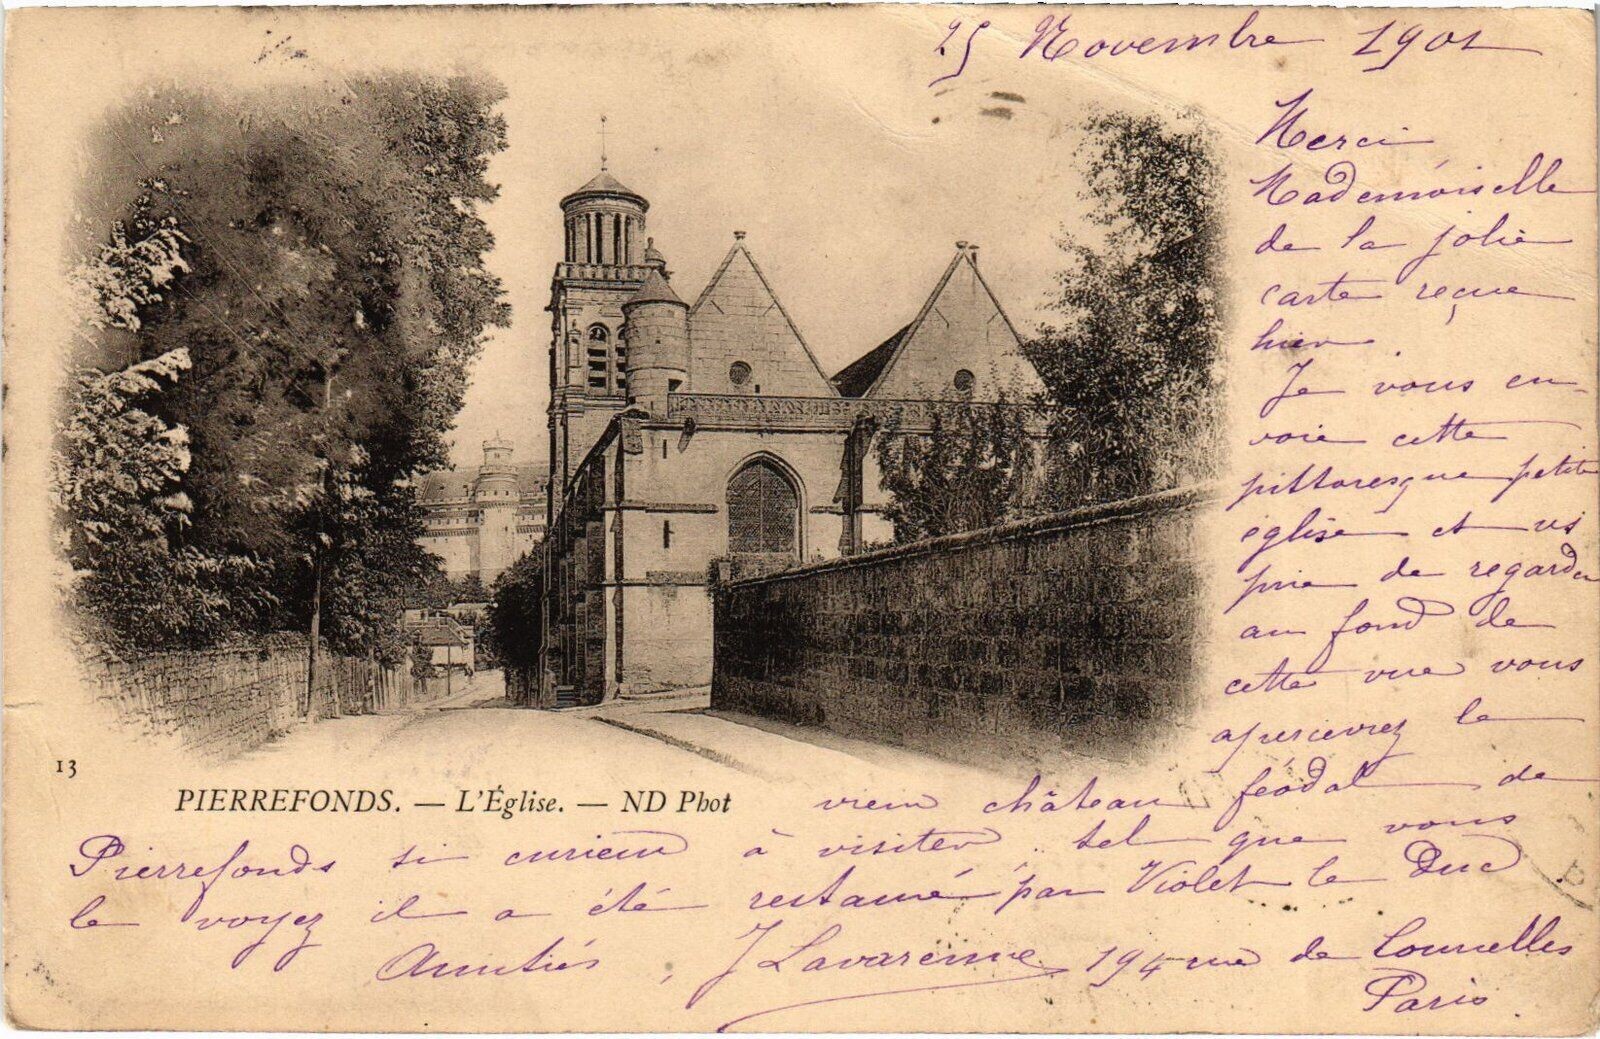 25 Novembre 1901
Merci
Mademoiselle
de la jolie
carte reçue
hier.
Je vous en-
voie cette
pittoresque petite
église et
prie de regarder
au fond de
cette vue vous
apercevrez le
13
PIERREFONDS. — L'Église. — ND Phot
vieux château féodal de
Pierrefonds si curieux à visiter. tel que vous
le voyez il a été restauré par Violet le Duc.
Amitiés, J Lavarenne 194 rue de Courcelles
Paris.